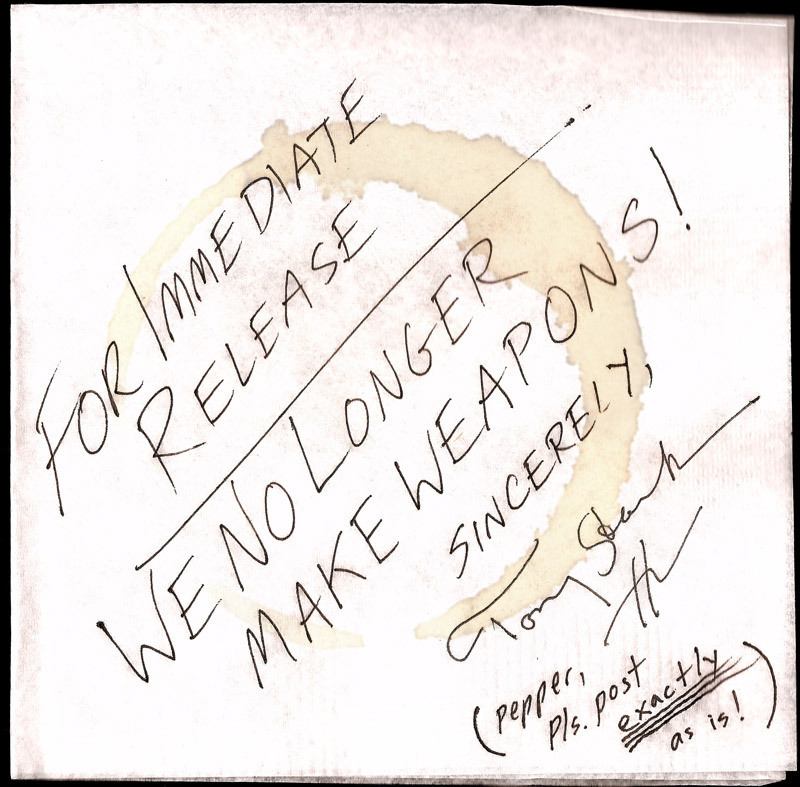 FOR IMMEDIATE
RELEASE
WE NO LONGER
MAKE WEAPONS!
SINCERELY,
Tony Stark
(pepper,
pls. post
exactly
as is!)